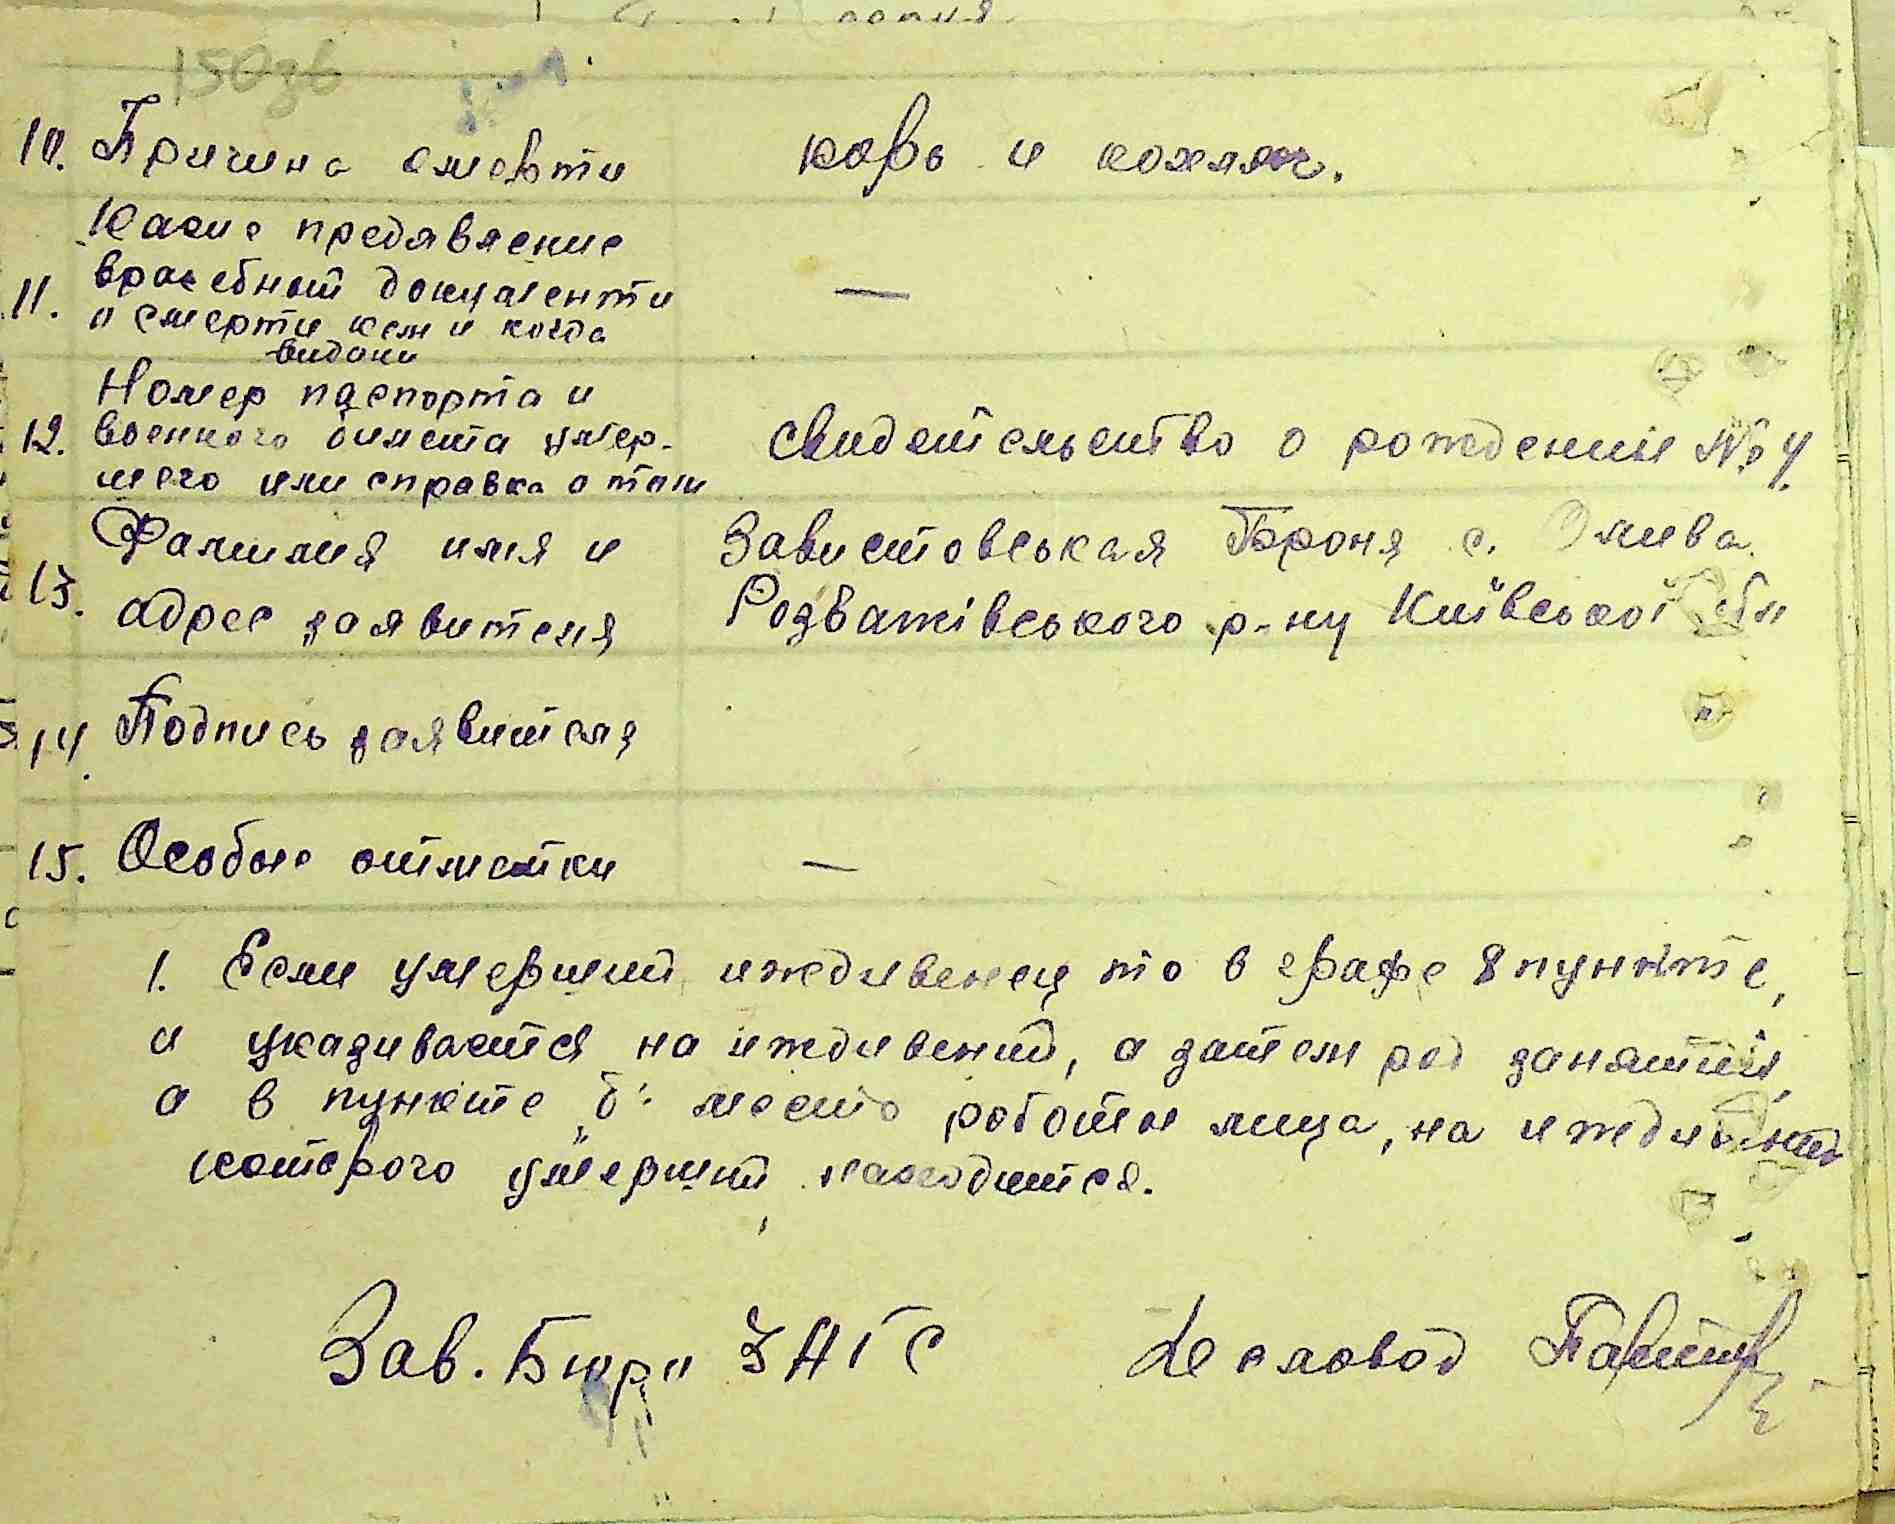 150зв
10. Причина смерти корь и кохлюч.
Какие предявление
врачебный документи
11. о смерти кем и когда —
видани
Номер паспорта и
12. военного билета умер- свидетельство о рождении № 4.
шего или справка о том
Фамилия имя и Завистовськая Броня с. Злива
13. адрес заявителя Розважівського р-ну Київської обл
14. Подпись заявителя
15. Особые отметки —
1. Если умерший иждивенец то в графе 8 пункте,
и указивается на иждивений, а затем род занятий,
а в пункте "б" место работы лица, на иждивений
которого умерший находится.
Зав. Бюро ЗАГС Деловод